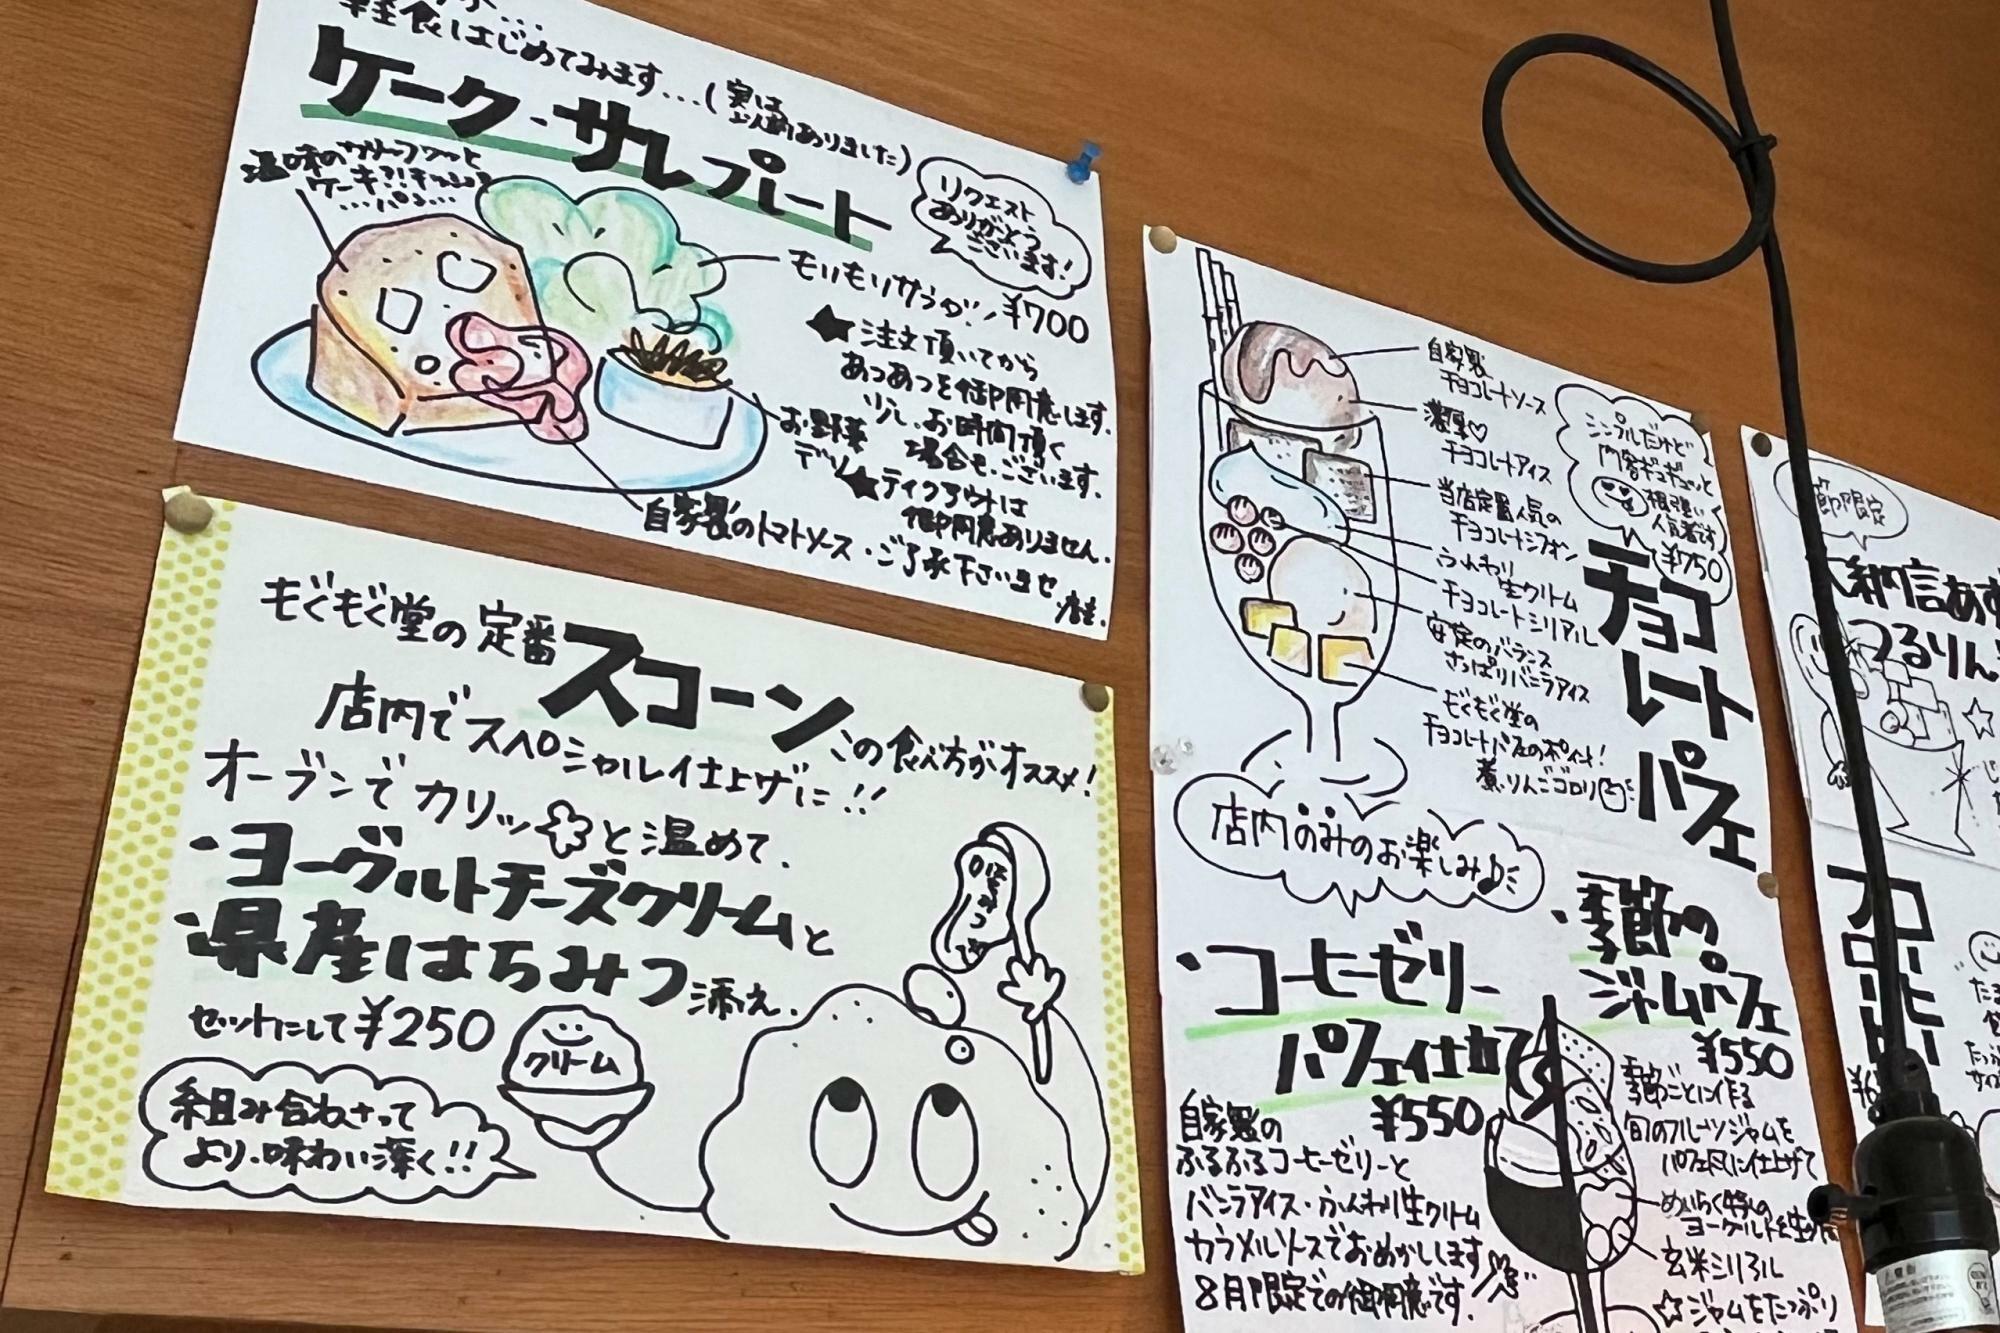 軽食はじめてみます...(実は
以前ありました)
ケーク・サレプレート
リクエスト
ありがとう
ございます!
ケーキ?!
もりもりサラダ! ¥700
★注文頂いてから
あつあつを御用意します。
少し、お時間頂く
場合も、ございます。
お野菜
デリ
★テイクアウトは
御用意ありません。
自家製のトマトソース・ご了承下さいませ
店主.
もぐもぐ堂の定番スコーンこの食べ方がオススメ!
店内でスペシャル仕上げに!!
オーブンでカリッと温めて、
・ヨーグルトチーズクリームと
・県産はちみつ添え.
セットにして¥250
クリーム
はちみつ
組み合わさって
より・味わい深く!!
自家製
チョコレートソース
濃厚♡
チョコレートアイス
当店定番人気の
チョコレートシフォン
ふんわり
生クリーム
チョコレートシリアル
安定のバランス
さっぱりバニラアイス
もぐもぐ堂の
チョコレートパフェのポイント!
煮りんごゴロリ
シンプルだけど
内容ギュギュッと
根強い
人気者です
¥750
チョコレートパフェ
店内のみのお楽しみ♪
・コーヒーゼリー
パフェ仕立て
¥550
自家製の
ふるふるコーヒーゼリーと
バニラアイス・ふんわり生クリーム
カラメルソースでおめかしします
8月限定での御用意です.
・季節の
ジャムパフェ
¥550
季節ごとに作る
旬のフルーツジャムを
パフェ風に仕上げて
玄米シリアル
☆ジャムをたっぷり
節限定
つるりん